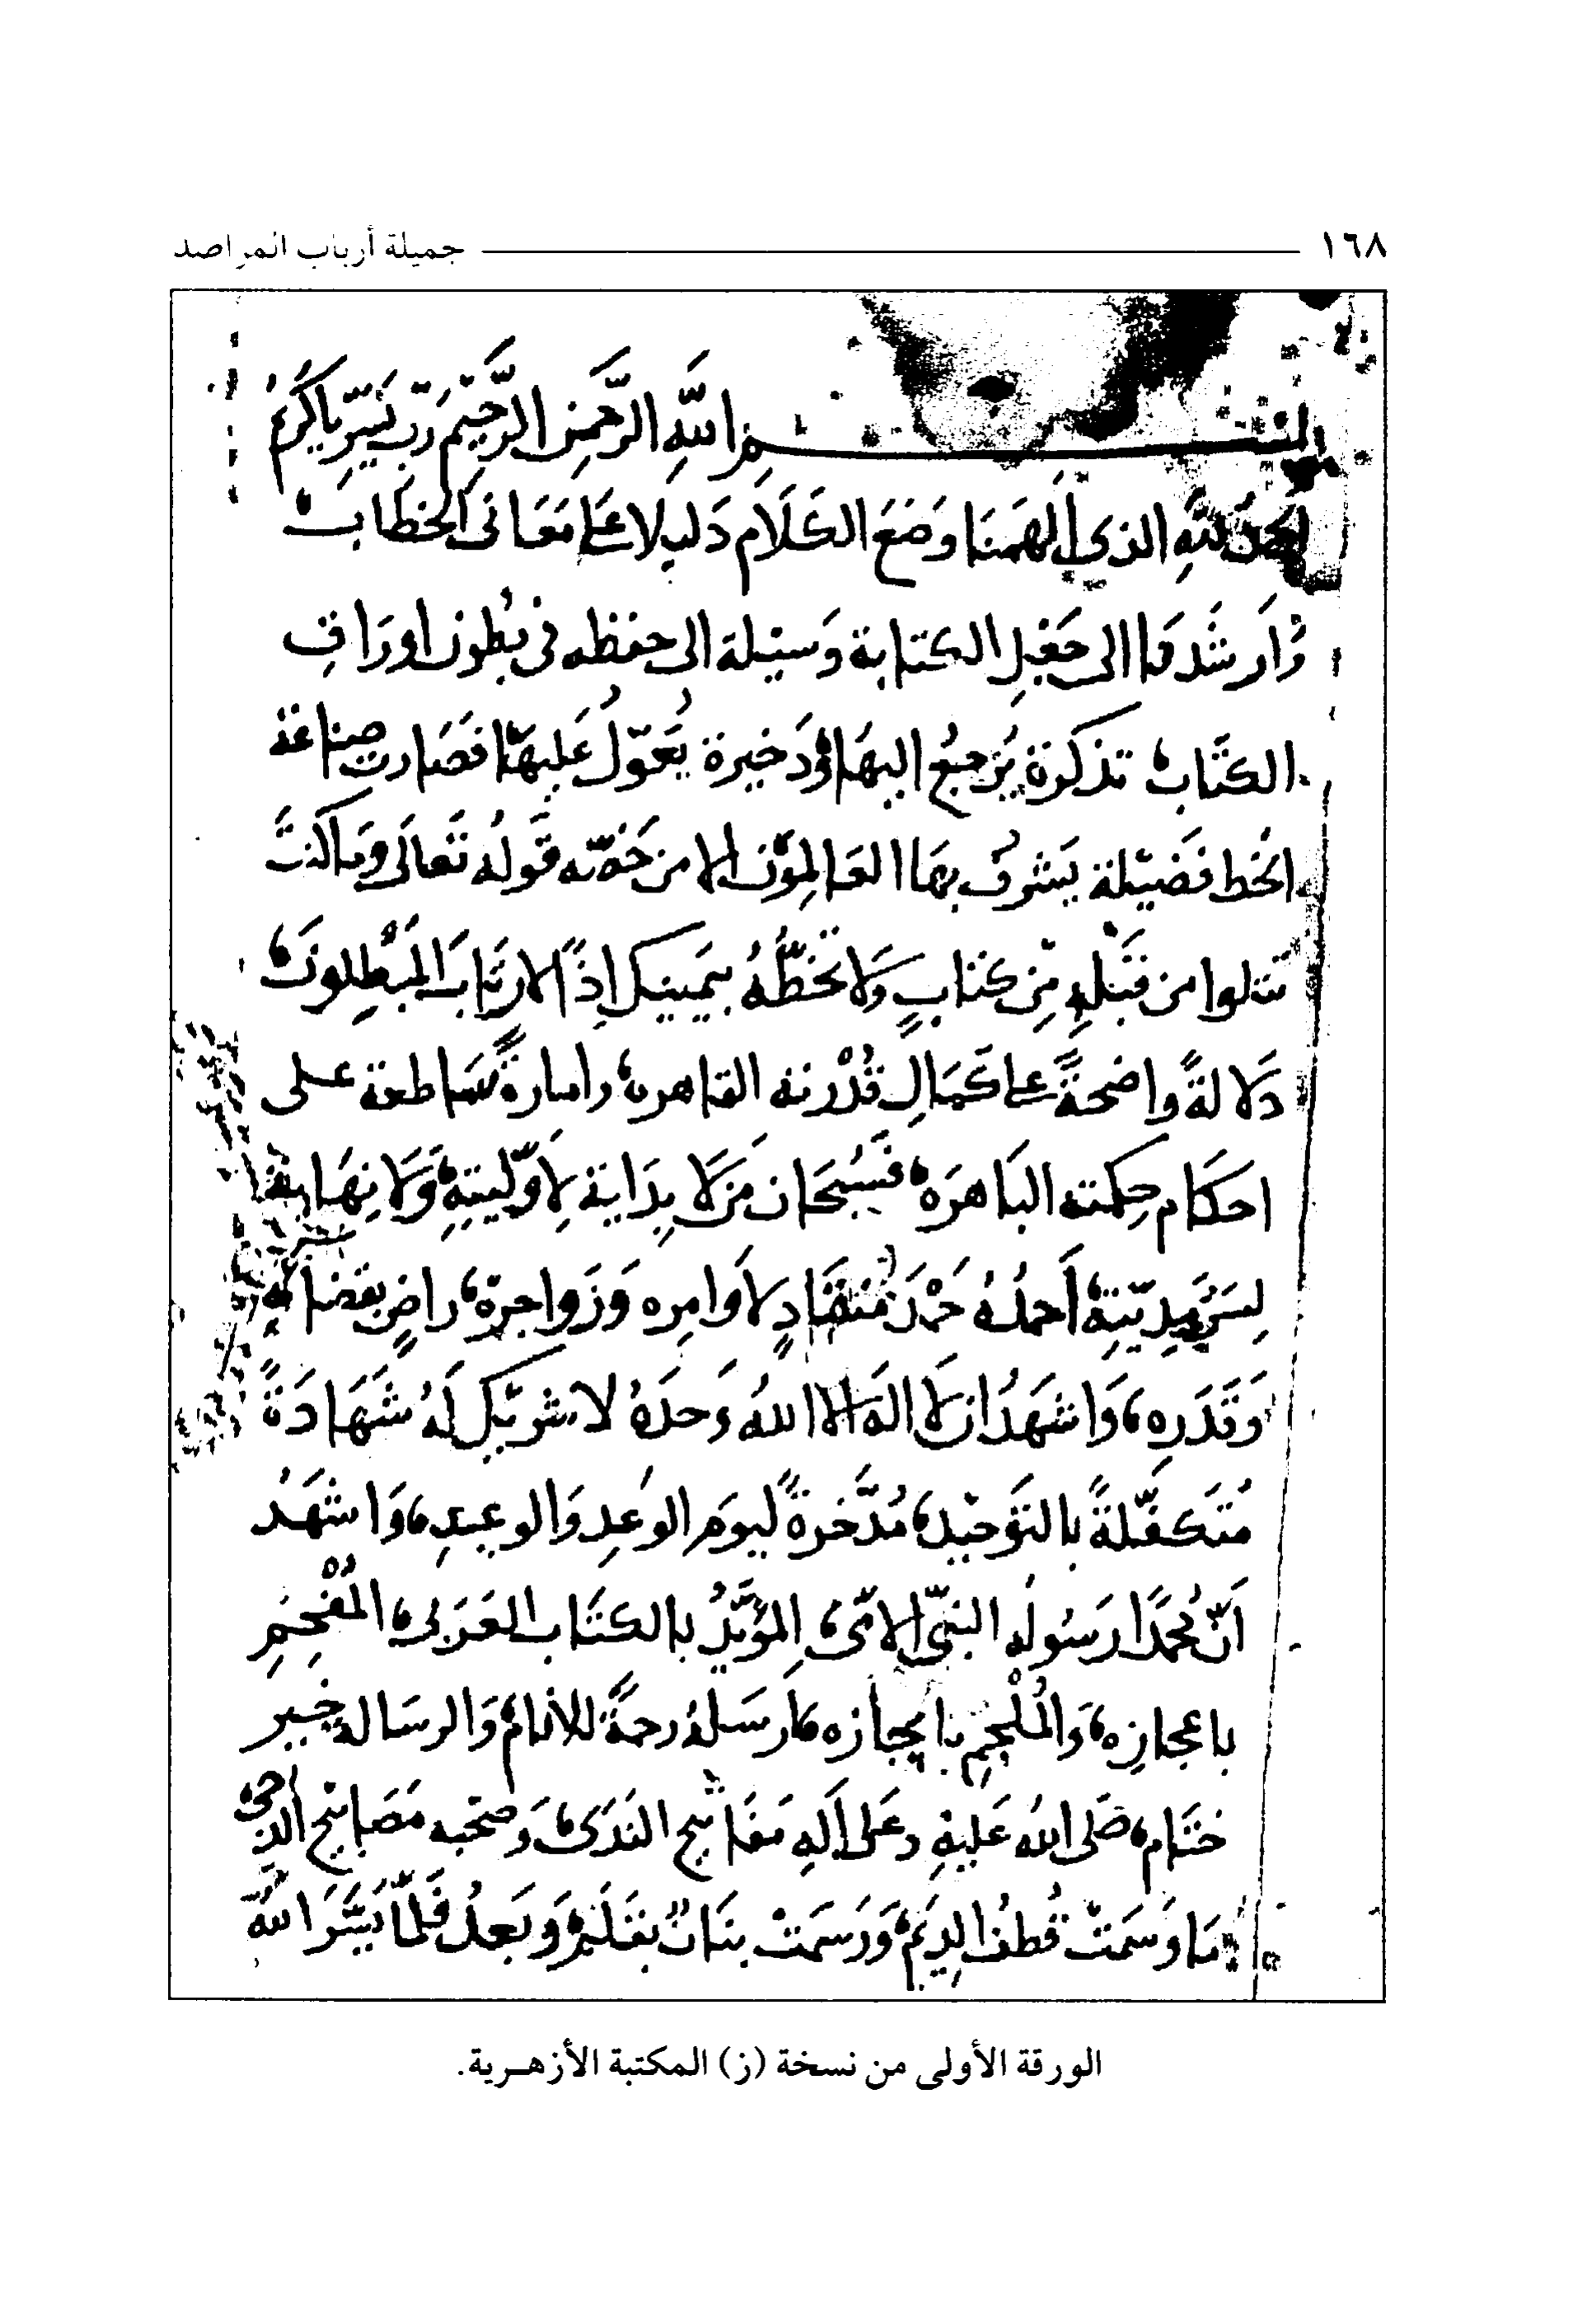 ١٦٨ جميلة أرباب المراصد
بسم اللهِ الرَّحمنِ الرَّحيم رَبِّ يَسِّر يا كريمُ
الحمدُ للهِ الذي ألهَمنَا وَضعَ الكلَام دَليلا عَلى مَعَاني الخطَاب
وَأرشَدنا الى جَعْلِ الكتابة وَسيْلة الى حفظه في بُطون اورَاقِ
الكتَاب تذكرة يُرجعُ اليهَا وَذخيرة يُعَوّلُ عَليهَا فصَارت صناعة
الخط فَضيْلة يَشرفُ بهَا العَالمُوْن الا من خَصّه قَولهُ تعَالَى وَما كنتَ
تتلوا من قَبْلهِ مِن كتَابٍ وَلا تخطّهُ بيَمينك اِذًا لارتَابَ المبْطِلونَ
دَلالةً واضحةً على كمَالِ قُدْرته القاهرة وامارةً سَاطعة على
احكَام حِكمته البَاهرَة فسُبحَان مَن لَا بِدَاية لِأوّليّتِهِ وَلا نِهَاية
لِسَرْمِديّتِهِ أَحمدُهُ حَمْدَ مُنقَادٍ لأوَامِرِه وَزَواجِرهِ راضٍ بقضائهِ
وَقَدَرِه وَاشهَدُ ان لا الهَ الا اللهُ وَحدَهُ لا شريكَ لَهُ شَهَادَةً
مُتَكفّلةً بالتوحيْد مُدَّخرةً ليومِ الوَعدِ وَالوعيدِ وَاشهَدُ
أنّ مُحمّدًا رَسُولُه النبيّ الامّي المؤيّدُ بالكتَاب العَرَبي المُفْحِمِ
باعجازِه وَالمُلْجِمِ بايجازه أرسَلهُ رحمةً للانام وَالرسَالة خير
ختَام صَلى اللهُ عَليهِ وَعَلى آلهِ مَفاتيح النَدَى وَصحبه مَصَابيْح الدجى
مَا وَسَمَتْ قُطفُ الدِيَمِ وَرَسَمَتْ بنَانٌ بقَلَمٍ وَبَعدُ فَلمّا يَسَّرَ اللهُ
الورقة الأولى من نسخة (ز) المكتبة الأزهـرية.